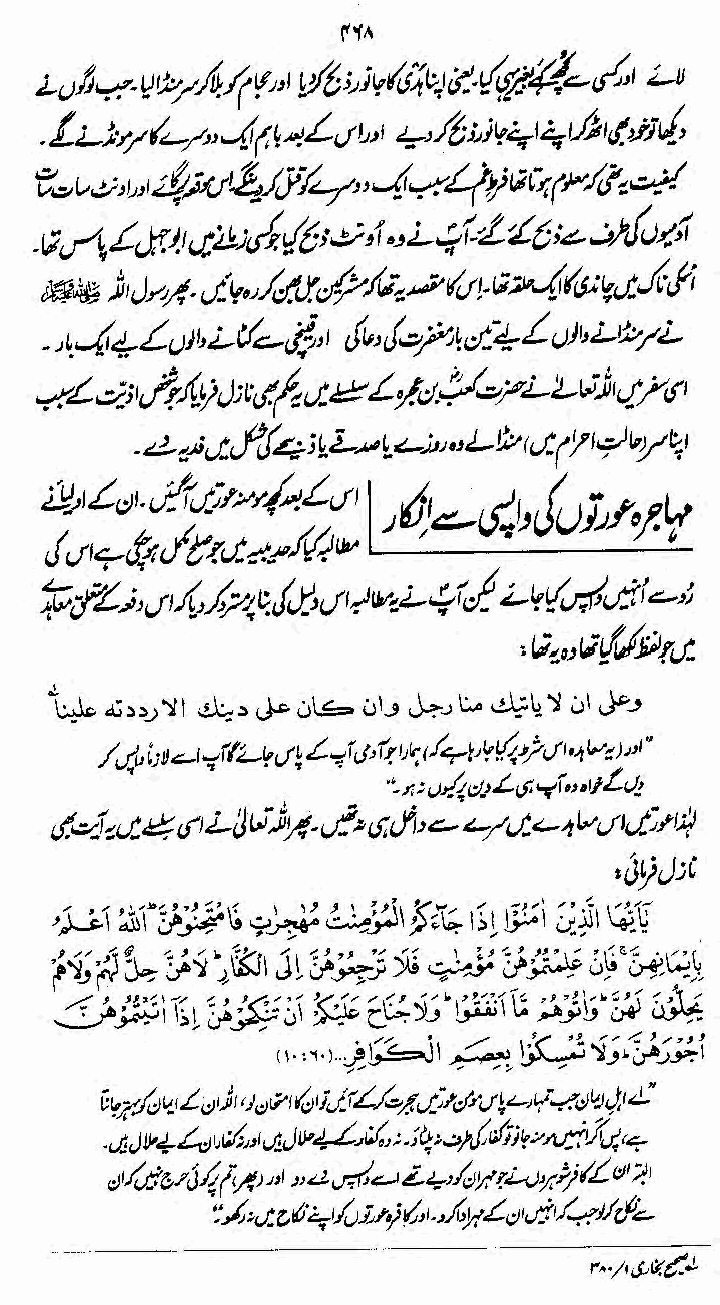 ۴۶۸
لائے اور کسی سے کچھ کہے بغیر یہی کیا۔ یعنی اپنا ہَدْی کا جانور ذبح کر دیا اور حجام کو بلا کر سر منڈا لیا۔ جب لوگوں نے
دیکھا تو خود بھی اٹھ کر اپنے اپنے جانور ذبح کر دیے اور اس کے بعد باہم ایک دوسرے کا سر مونڈنے لگے۔
کیفیت یہ تھی کہ معلوم ہوتا تھا فرطِ غم کے سبب ایک دوسرے کو قتل کر دینگے۔ اس موقعہ پر گائے اور اونٹ سات سات
آدمیوں کی طرف سے ذبح کئے گئے۔ آپؐ نے وہ اُونٹ ذبح کیا جو کسی زمانے میں ابوجہل کے پاس تھا۔
اسکی ناک میں چاندی کا ایک حلقہ تھا۔ اِس کا مقصد یہ تھا کہ مشرکین جل بھن کر رہ جائیں۔ پھر رسول اللہ ﷺ
نے سر منڈانے والوں کے لیے تین بار مغفرت کی دعا کی اور قینچی سے کٹانے والوں کے لیے ایک بار۔
اسی سفر میں اللہ تعالےٰ نے حضرت کعبؓ بن عجرہ کے سلسلے میں یہ حکم بھی نازل فرمایا کہ جو شخص اذیّت کے سبب
اپنا سر (حالتِ احرام میں) منڈالے وہ روزے یا صدقے یا ذبیحے کی شکل میں فدیہ دے۔
مہاجرہ عورتوں کی واپسی سے اِنکار
اس کے بعد کچھ مومنہ عورتیں آگئیں۔ ان کے اولیأ نے
مطالبہ کیا کہ حدیبیہ میں جو صلح مکمل ہو چکی ہے اس کی
رُو سے اُنہیں واپس کیا جائے لیکن آپؐ نے یہ مطالبہ اس دلیل کی بنا پر مسترد کر دیا کہ اس دفعہ کے متعلق معاہدے
میں جو لفظ لکھا گیا تھا وہ یہ تھا:
وعلی ان لا یاتیك منا رجل وان كان علی دینك الا رددته علینا لہ
”اور (یہ معاہدہ اس شرط پر کیا جا رہا ہے کہ) ہمارا جو آدمی آپ کے پاس جائے گا آپ اسے لازماً واپس کر
دیں گے خواہ وہ آپ ہی کے دین پر کیوں نہ ہو۔“
لہٰذا عورتیں اس معاہدے میں سرے سے داخل ہی نہ تھیں۔ پھر اللہ تعالیٰ نے اسی سلسلے میں یہ آیت بھی
نازل فرمائی:
يٰٓاَيُّهَا الَّذِيْنَ اٰمَنُوْٓا اِذَا جَآءَكُمُ الْمُؤْمِنٰتُ مُهٰجِرٰتٍ فَامْتَحِنُوْهُنَّ ؕ اَللّٰهُ اَعْلَمُ
بِاِيْمَانِهِنَّ ۚ فَاِنْ عَلِمْتُمُوْهُنَّ مُؤْمِنٰتٍ فَلَا تَرْجِعُوْهُنَّ اِلَى الْكُفَّارِ ؕ لَا هُنَّ حِلٌّ لَّهُمْ وَلَا هُمْ
يَحِلُّوْنَ لَهُنَّ ؕ وَاٰتُوْهُمْ مَّآ اَنْفَقُوْا ؕ وَلَا جُنَاحَ عَلَيْكُمْ اَنْ تَنْكِحُوْهُنَّ اِذَآ اٰتَيْتُمُوْهُنَّ
اُجُوْرَهُنَّ ؕ وَلَا تُمْسِكُوْا بِعِصَمِ الْكَوَافِرِ ... (۱۰:۶۰)
”اے اہلِ ایمان جب تمہارے پاس مومن عورتیں ہجرت کر کے آئیں تو ان کا امتحان لو، اللہ ان کے ایمان کو بہتر جانتا
ہے، پس اگر انہیں مومنہ جانو تو کفار کی طرف نہ پلٹاؤ۔ نہ وہ کفار کے لیے حلال ہیں اور نہ کفار ان کے لیے حلال ہیں۔
البتہ ان کے کافر شوہروں نے جو مہر ان کو دیے تھے اسے واپس دے دو اور (پھر) تم پر کوئی حرج نہیں کہ ان
سے نکاح کر لو جب کہ انہیں ان کے مہر ادا کر دو۔ اور کافرہ عورتوں کو اپنے نکاح میں نہ رکھو۔“
لہ صحیح بخاری ۱/۳۸۰